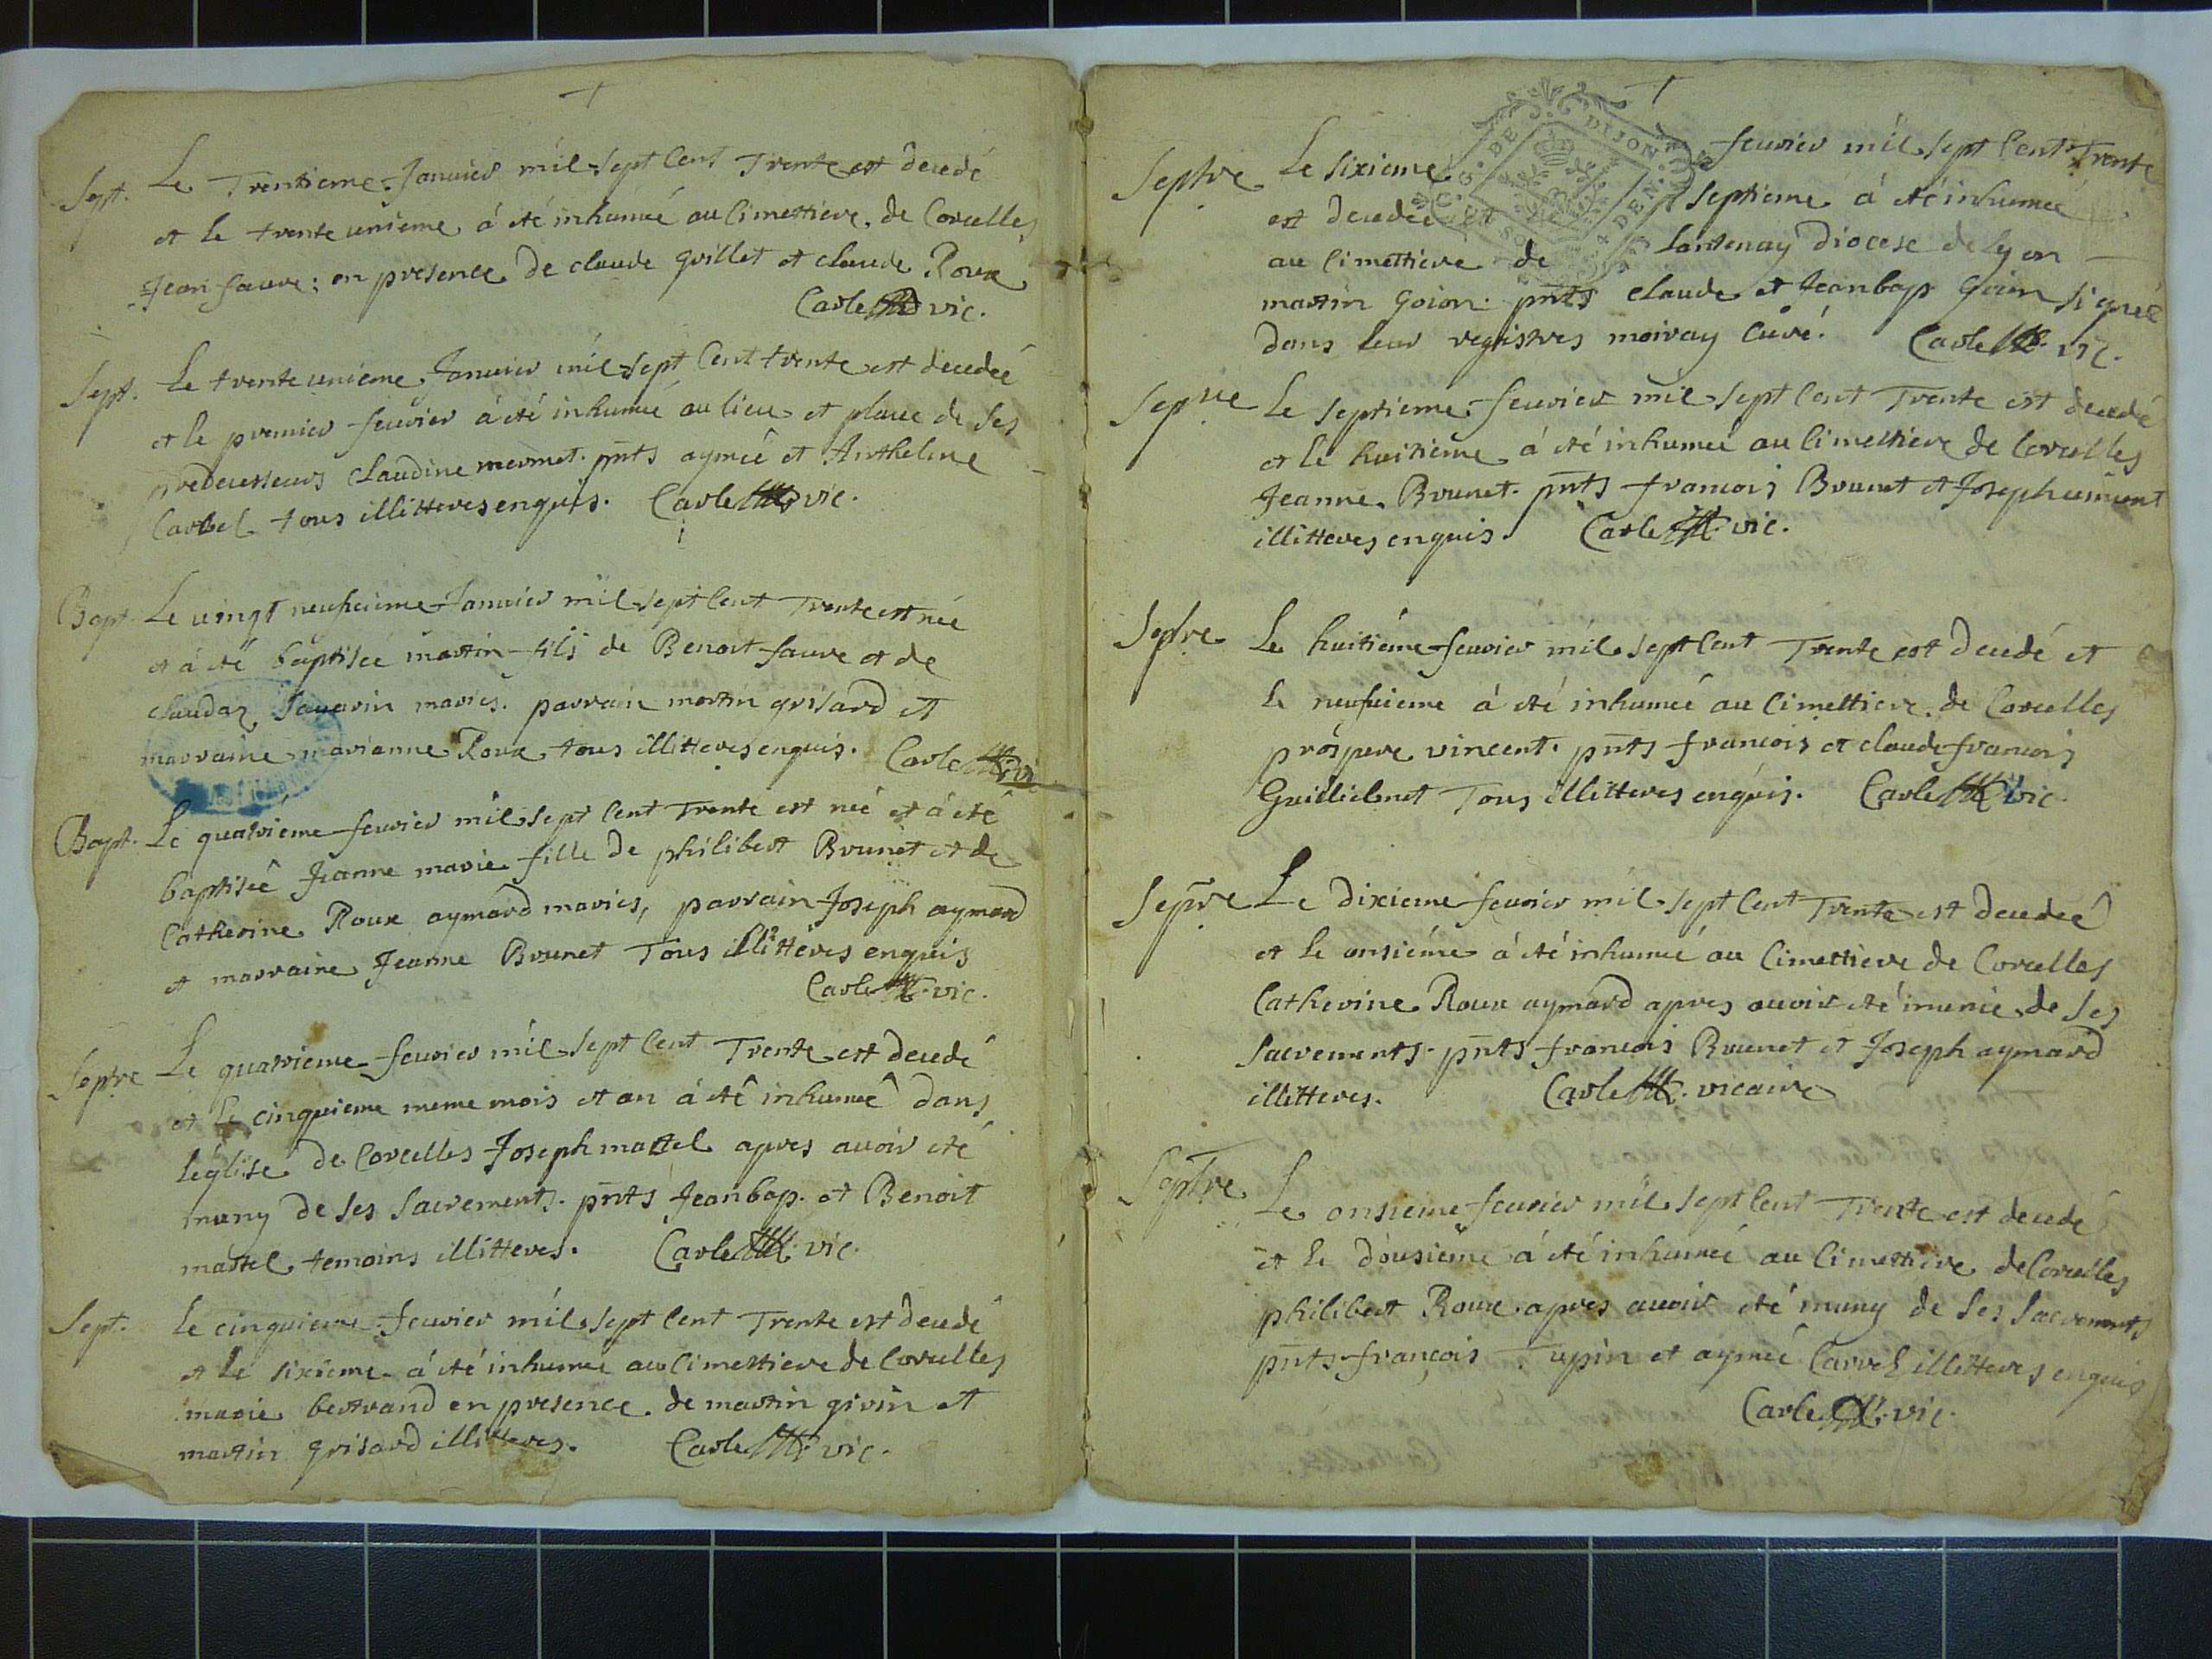 Sept. Le Trentieme Januier mil sept Cent Trente est decedé
et le trente unieme á été inhumeé au Cimettiere de Corcelles
Jean fauure: en presence de claude grillet et claude Roux
Carle vic.
Sept. Le trente unieme Januier mil sept Cent trente est decedeé
et le premier feurier á été inhumeé au lieu et place de ses
predecesseurs Claudine mermet. pnts aymeé et Anthelme
Carvel tous illitteres enquis. Carle vic.
Bapt. Le uingt neufuieme Januier mil sept Cent Trente est neé
et á été baptiseé martin fils de Benoit fauure et de
claudaz Sauarin mariés. parrain martin grisard et
marraine marianne Roux tous illitteres enquis. Carle vi
Bapt. Le quatriéme feurier mil sept Cent Trente est neé et á été
baptiseé Jeanne marie fille de philibert Brunet et de
Catherine Roux aymard mariés, parrain Joseph aymard
et marraine Jeanne Brunet Tous illitteres enquis
Carle vic.
Septre Le quatrieme feurier mil sept Cent Trente est decedé
et le cinquieme meme mois et an á été inhumeé dans
léglise de Corcelles Joseph martel apres auoir eté
muny de ses Sacrements. pnts Jeanbap. et Benoit
martel temoins illitteres. Carle vic.
Sept. Le cinquieme feurier mil sept Cent Trente est decedé
et le sixieme á été inhumeé au Cimettiere de Corcelles
marie bertrand en presence de martin girin et
martin grisard illitteres. Carle vic.
Septre Le sixieme feurier mil sept Cent Trente
est decedeé et septieme á été inhumeé
au Cimettiere de Lantenay Diocese de Lyon
martin goion. pnts claude et Jeanbap goion signé
dans leur registres moiray Curé. Carle vic.
GEN. DE DIJON
Septre Le septieme feurier mil sept Cent Trente est decedé
et le huitieme á été inhumeé au Cimettiere de Corcelles
Jeanne Brunet. pnts francois Brunet et Joseph
illitteres enquis. Carle vic.
Septre Le huitiéme feurier mil sept Cent Trente est decedé et
le neufuieme á été inhumeé au Cimettiere de Corcelles
prospere vincent. pnts francois et claude francois
Guillielmet Tous illitteres enquis. Carle vic.
Septre Le Dixieme feurier mil sept Cent Trente est decedeé
et le onsiéme á été inhumeé au Cimettiere de Corcelles
Catherine Roux aymard apres auoir été munie de ses
Sacrements. pnts francois Brunet et Joseph aymard
illitteres. Carle vicaire
Septre Le onsieme feurier mil sept Cent Trente est decedé
et le dousieme á été inhumeé au Cimettiere de Corcelles
philibert Roux apres auoir été muny de ses Sacrements
pnts françois Tupin et aymeé Carvel illitteres enquis
Carle vic.